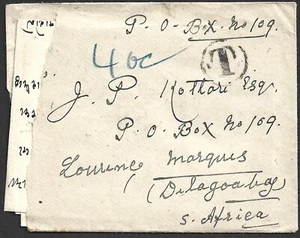 P. O. Box. No 109.
40c
T
J. P. Kothari Esq.
P. O. Box No 109.
Lourence Marques
(Delagoabay)
S. Africa